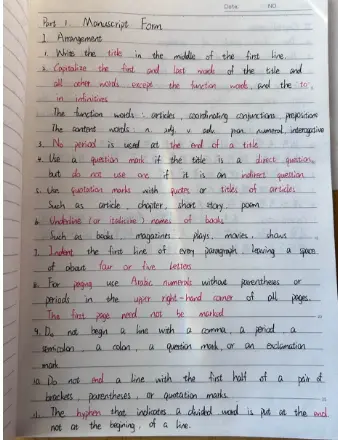 Date. NO.
Part 1 Manuscript Form
I Arrangement
1. Write the title in the middle of the first line.
2. Capitalize the first and last words of the title and
all other words except the function words, and the "to"
in infinitives
The function words: articles, coordinating conjunctions, prepositions
The content words n. adj. v. adv. pron. numeral interrogative
3. No period is used at the end of a title
4. Use a question mark if the title is a direct question,
but do not use one if it is an indirect question
5. Use quotation marks with quotes or titles of articles
Such as article, chapter, short story, poem
6. Underline (or italicise) names of books
Such as books, magazines, plays, movies, shows
7. Indent the first line of every paragraph, leaving a space
of about four or five letters
8. For paging use Arabic numerals without parentheses or
periods in the upper right-hand corner of all pages.
The first page need not be marked
9. Do not begin a line with a comma, a period, a
semicolon, a colon, a question mark, or an exclamation
mark
10. Do not end a line with the first half of a pair of
brackets, parentheses, or quotation marks.
11. The hyphen that indicates a divided word is put at the end
not at the begining, of a line.